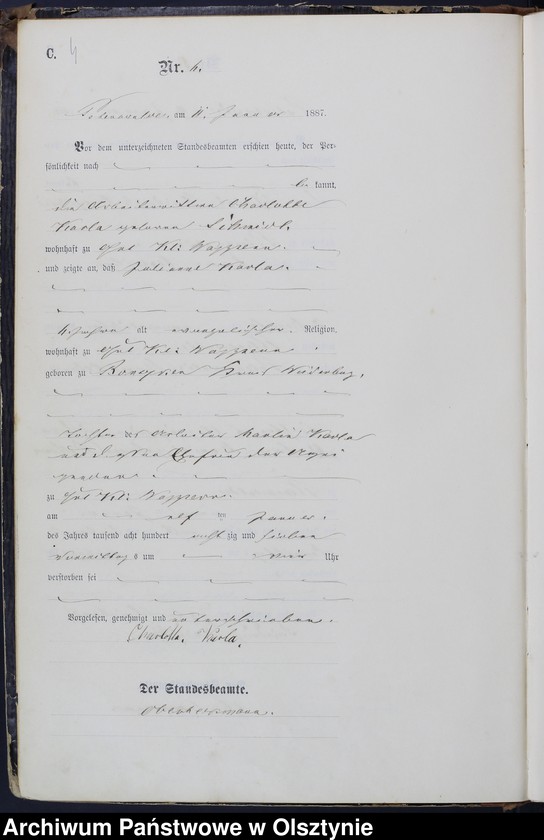 C. 4
Nr. 4.
am 11. Januar 1887.
Vor dem unterzeichneten Standesbeamten erschien heute, der Per-
sönlichkeit nach
be kannt,
die Arbeiterwittwe Charlotte
Karla geboren Schmidt,
wohnhaft zu Gut Kl: Nappern.
und zeigte an, daß Juliane Karla.
alt evangelischer Religion,
wohnhaft zu Gut Kl: Nappern
geboren zu Kreis Neidenburg,
Tochter des Arbeiter Martin Karla
und dessen Ehefrau der
zu Gut Kl: Nappern.
am elf ten Januar.
des Jahres tausend acht hundert acht zig und sieben
Vormittag s um Uhr
verstorben sei
Vorgelesen, genehmigt und unterschrieben.
Charlotte. Karla.
Der Standesbeamte.
Archiwum Państwowe w Olsztynie